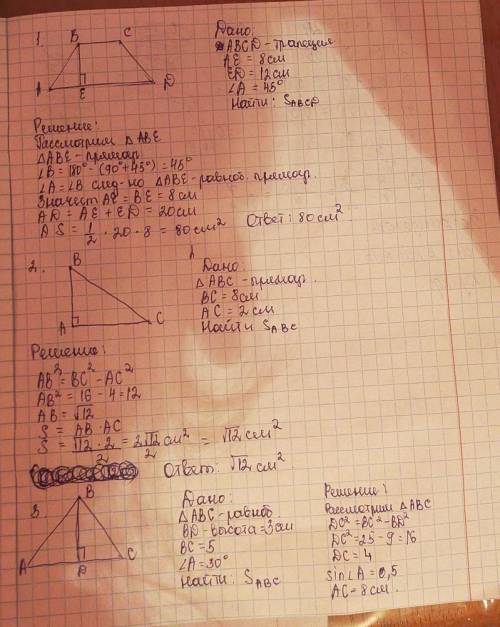 1.
B C
A E D
Дано:
ABCD - трапеция
AE = 8см
ED = 12см
∠A = 45°
Найти: S ABCD
Решение:
Рассмотрим △ABE
△ABE - прямоуг.
∠B = 180° - (90° + 45°) = 45°
∠A = ∠B след-но △ABE - равноб. прямоуг.
Значит AE = BE = 8см
AD = AE + ED = 20см
S = 1/2 · 20 · 8 = 80см² Ответ: 80см²
2.
B
A C
Дано:
△ABC - прямоуг.
BC = 8см
AC = 2см
Найти S ABC
Решение:
AB² = BC² - AC²
AB² = 16 - 4 = 12
AB = √12
S = AB · AC
S = √12 · 2 / 2 = 2√12 / 2 см² = √12 см²
Ответ: √12 см²
3.
B
A D C
Дано:
△ABC - равноб.
BD - высота = 3см
BC = 5
∠A = 30°
Найти: S ABC
Решение:
Рассмотрим △ABC
DC² = BC² - BD²
DC² = 25 - 9 = 16
DC = 4
sin∠A = 0,5
AC = 8см.